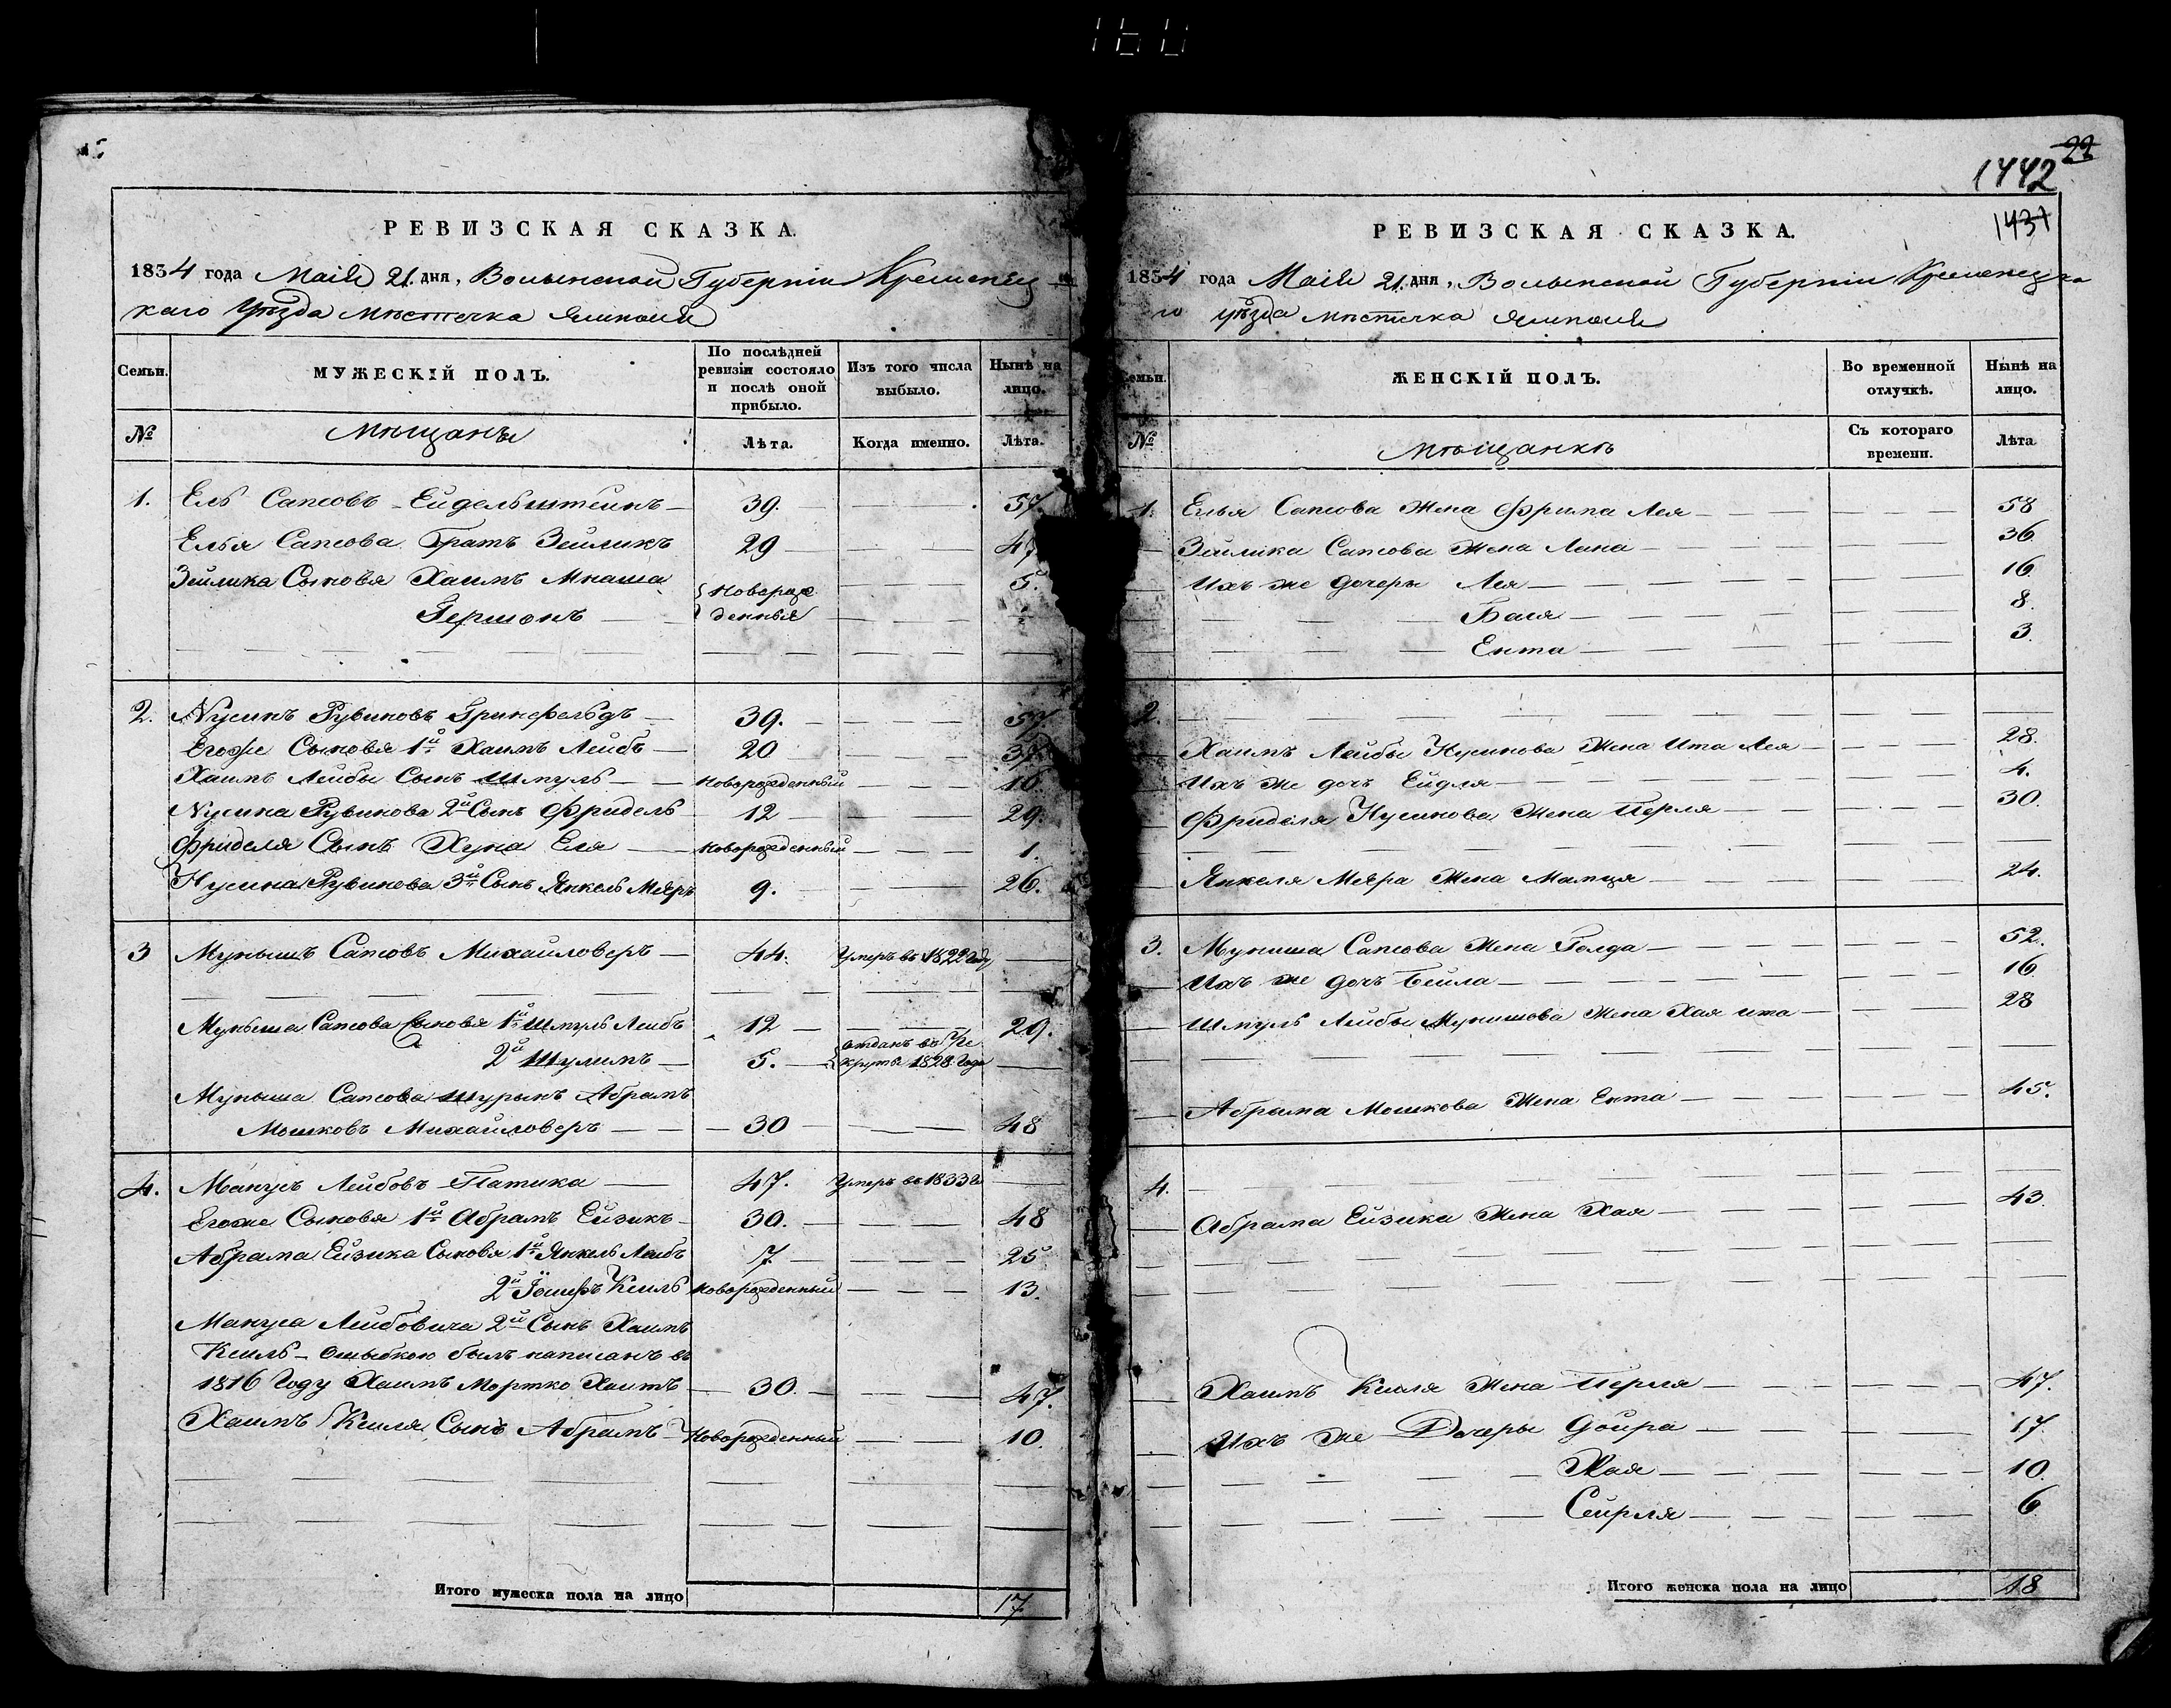 160
РЕВИЗСКАЯ СКАЗКА.
1834 года Маія 21 дня, Волынской Губерніи Кременец
каго Уѣзда мѣстечка Ямполя
Семьи.
МУЖЕСКІЙ ПОЛЪ.
По послѣдней ревизіи состояло и послѣ оной прибыло.
Изъ того числа выбыло.
Нынѣ на лицо.
№
Мѣщанъ
Лѣта.
Когда именно.
Лѣта.
1. Ель Сапсовъ Ейдельштейнъ 39. 57.
Еля Сапсова Братъ Зейликъ 29 47
Зейлика Сыновья Хаимъ Мнаша Новорож 5.
Гершонъ денныя
2. Нусинъ Рувиновъ Гринфельдъ 39. 57
Егоже Сыновья 1й Хаимъ Лейбъ 20 37
Хаимъ Лейбы Сынъ Шмуль новорожденный 16.
Нусина Рувинова 2й Сынъ Фридель 12 29.
Фриделя Сынъ Хуна Еля новорожденный 1.
Нусина Рувинова 3й Сынъ Янкель Меєръ 9. 26.
3 Мунышъ Сапсовъ Михайловеръ 44. Умеръ въ 1822 году
Муныша Сапсова Сыновья 1й Шмуль Лейбъ 12 29.
2й Шулимъ 5. отданъ въ Ре
круты 1828 Года
Муныша Сапсова Шурынъ Абрамъ
Мошковъ Михайловеръ 30 48
4. Манусъ Лейбовъ Патика 47. Умеръ въ 1833 г
Егоже Сыновья 1й Абрамъ Ейзикъ 30. 48
Абрама Ейзика Сыновья 1й Янкель Лейбъ 7. 25
2й Іосифъ Кейль новорожденный 13.
Мануса Лейбовича 2й Сынъ Хаимъ
Кейль Ошыбкою былъ написанъ въ
1816 Году Хаимъ Мортко Хаитъ 30. 47.
Хаимъ Кейля Сынъ Абрамъ Новорожденный 10.
Итого мужеска пола на лицо 17
22
1442
1437
РЕВИЗСКАЯ СКАЗКА.
1834 года Маія 21 дня, Волынской Губерніи Кременецка
го уѣзда мѣстечка Ямполя
Семьи.
ЖЕНСКІЙ ПОЛЪ.
Во временной отлучкѣ.
Нынѣ на лицо.
№
мѣщанкѣ
Съ котораго времени.
Лѣта
1. Елья Сапсова Жена Фрима Лея 58
Зейлика Сапсова Жена Лана 36.
Ихъ же дочеры Лея 16.
Бася 8.
Ента 3.
2.
Хаимъ Лейбы Нусинова Жена Ита Лея 28.
Ихъ же дочъ Ейдля 4.
Фриделя Нусинова Жена Перля 30.
Янкеля Меєра Жена Мамця 24.
3. Муниша Сапсова Жена Голда 52.
Ихъ же дочъ Бейла 16.
Шмуль Лейбы Мунишова Жена Хая ита 28
Абрама Мошкова Жена Ента 45.
4.
Абрама Ейзика Жена Хая 43.
Хаимъ Кейля Жена Перля 47.
Ихъ же Дочеры Двйра 17
Хая 10.
Сейрля 6
Итого женска пола на лицо 18